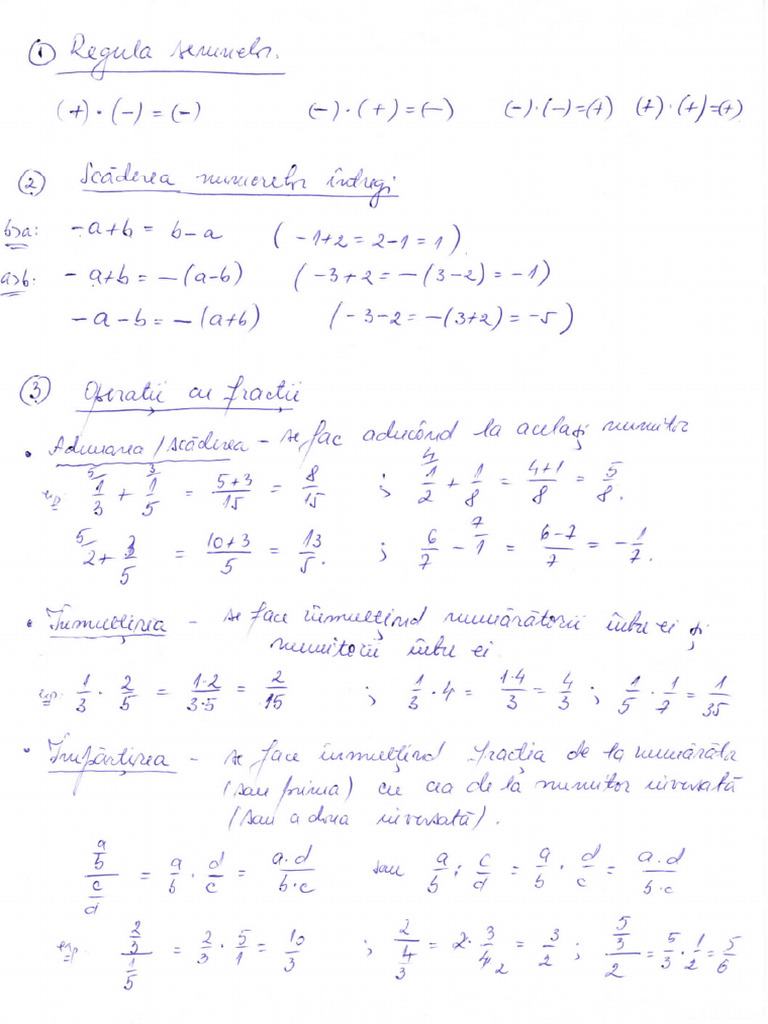 ① Regula semnelor.
(+)·(-)=(-) (-)·(+)=(-) (-)·(-)=(+) (+)·(+)=(+)
② Scăderea numerelor întregi
b>a: -a+b = b-a (-1+2=2-1=1)
a>b: -a+b = -(a-b) (-3+2=-(3-2)=-1)
-a-b=-(a+b) (-3-2=-(3+2)=-5)
③ Operații cu fracții
• Adunarea/scăderea - se fac aducând la același numitor
ex: 5/ 1/3 + 3/ 1/5 = (5+3)/15 = 8/15 ; 4/ 1/2 + 1/8 = (4+1)/8 = 5/8.
5/ 2 + 3/5 = (10+3)/5 = 13/5. ; 6/7 - 7/ 1 = (6-7)/7 = -1/7.
• Înmulțirea - se face înmulțind numărătorii între ei și
numitorii între ei.
ex: 1/3 · 2/5 = (1·2)/(3·5) = 2/15 ; 1/3 · 4 = (1·4)/3 = 4/3 ; 1/5 · 1/7 = 1/35
• Împărțirea - se face înmulțind fracția de la numărăto
(sau prima) cu cea de la numitor inversată
(sau a doua inversată).
(a/b)/(c/d) = a/b · d/c = (a.d)/(b·c) sau a/b : c/d = a/b · d/c = (a.d)/(b.c)
ex: (2/3)/(1/5) = 2/3 · 5/1 = 10/3 ; 2/(4/3) = 2· 3/4 2 = 3/2 ; (5/3)/2 = 5/3 · 1/2 = 5/6